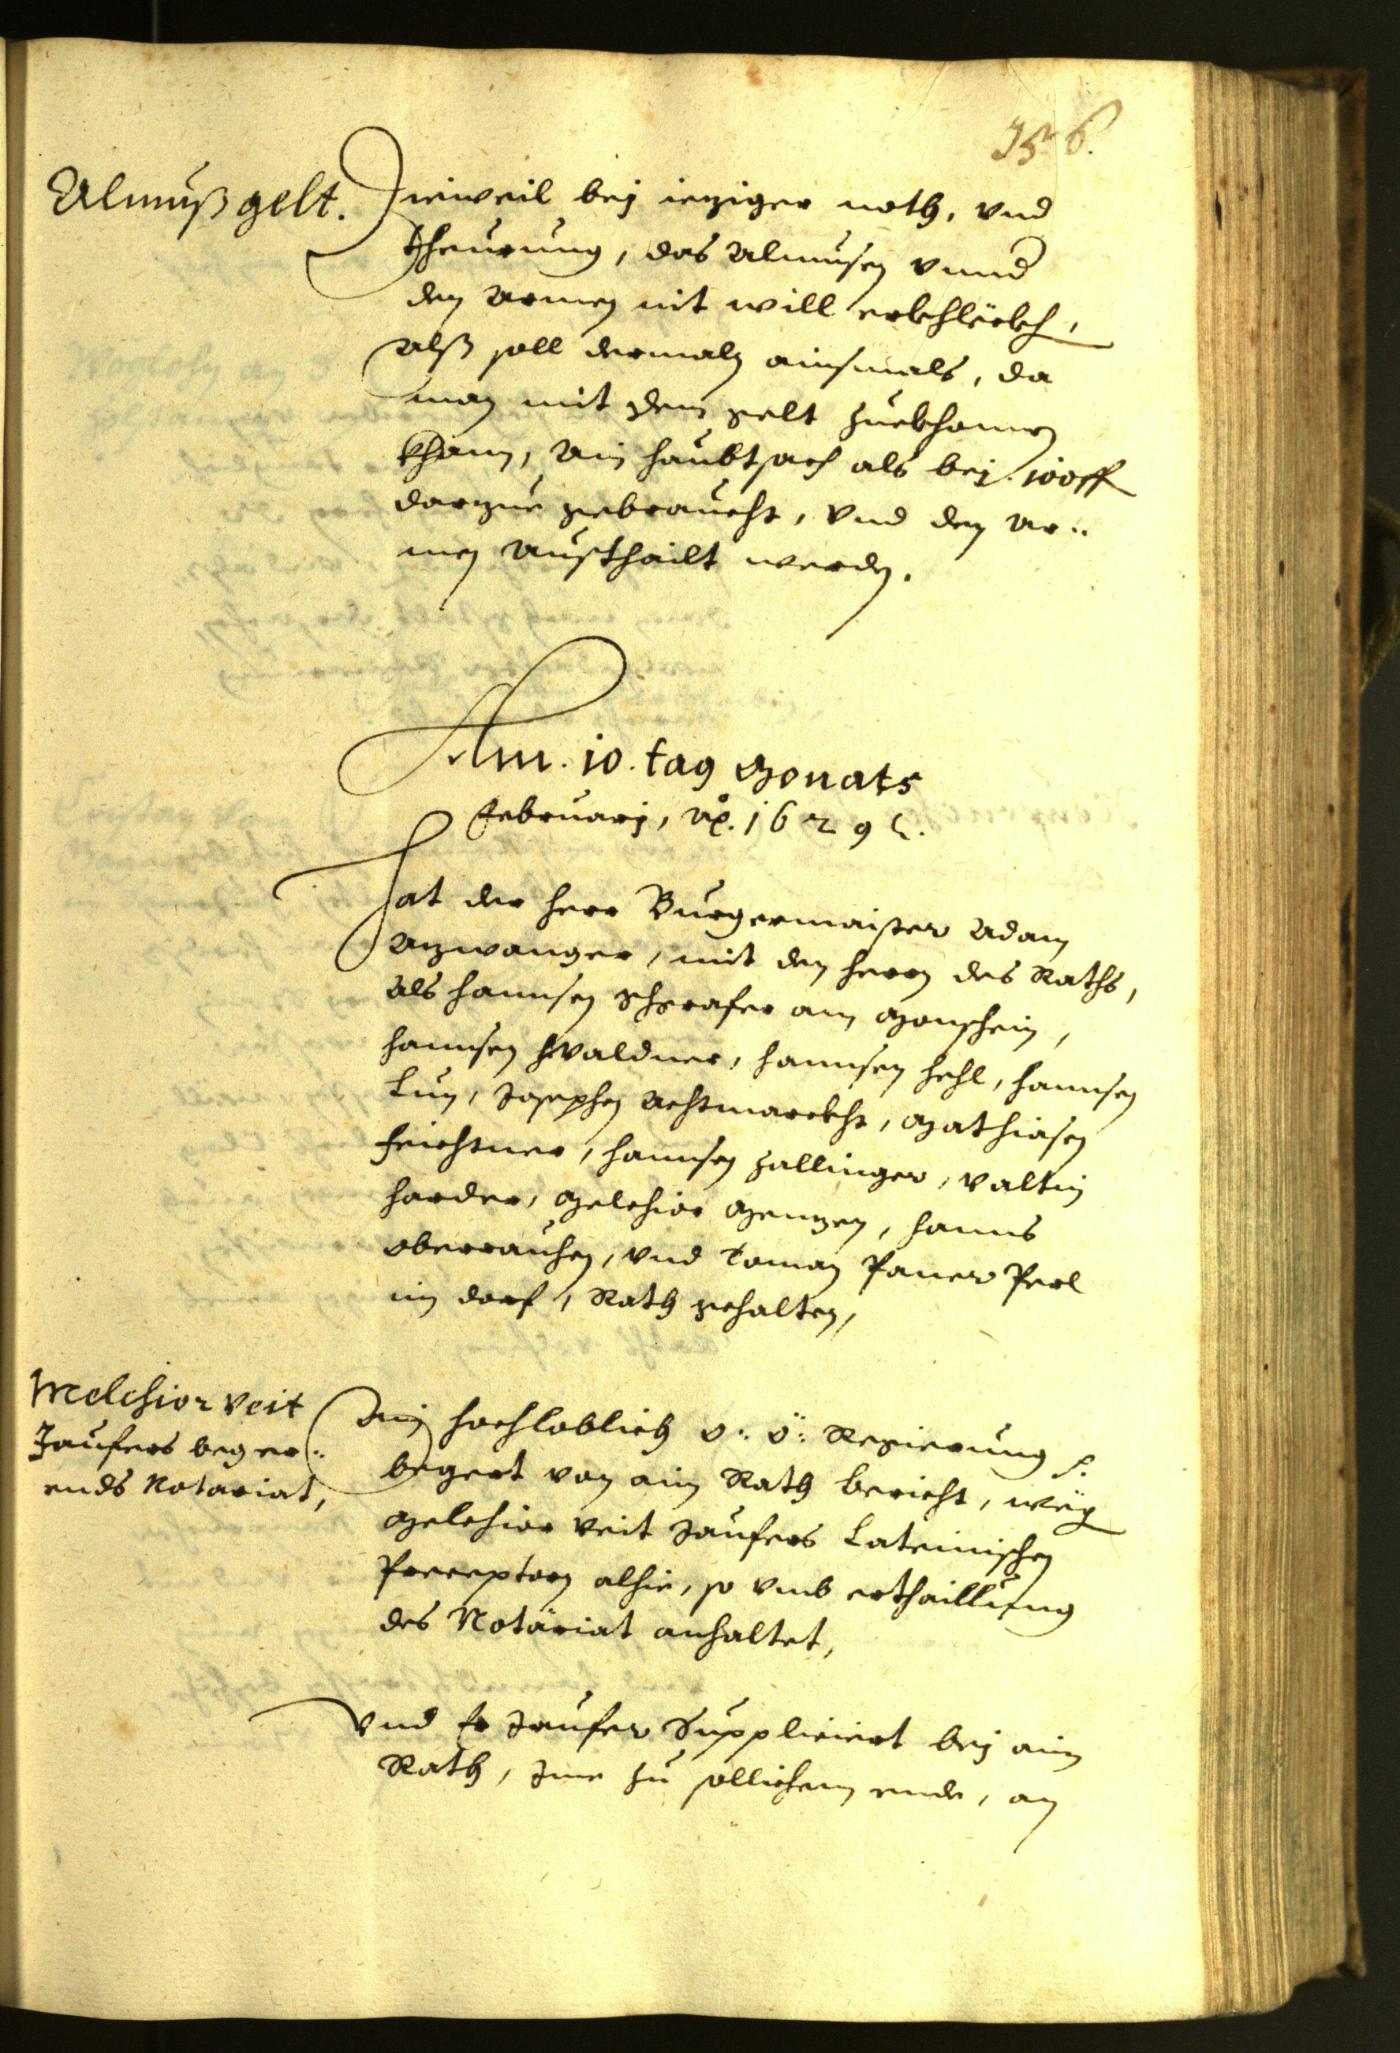 156.
Almuß gelt.
Dieweil bej ieziger noth, vnd
theurung, das Almusen vnnd
den Armen nit will erkhleckh,
Alß soll dermaln ainsmals, da
man mit dem gelt zuekhomen
khann, Ain haubtsach als bej. 100 ff
darzue gebraucht, vnd den Ar:
men Austhailt werden.
Am. 10. tag Monats
Februarj, Ao. 1629 C.
Hat der Herr Burgermaister Adam
Azwanger, mit den Herrn des Raths,
als Hannsen Schrafer am Monschein,
Hannsen Waldner, Hannsen Hehl, Hannsen
Lun, Josephen Achtmarckht, Mathiasen
Feichtner, Hannsen Zallinger, Valtin
Harder, Melchior Menzen, Hanns
Oberrauchen, vnd Toman Paner Perl
im dorf, Rath gehalten,
Melchior Veit
Jaufers beger:
ends Notariat,
Ain hochloblich o: ö: Regierung
begert von ain Rath bericht, weg
Melchior Veit Jaufers Lateinischen
Preceptorn alhie, so vmb erthaillung
des Notariat anhaltet,
Vnd Er Jaufer Suppliciert bej ain
Rath, Ime zu sollichem ende, an